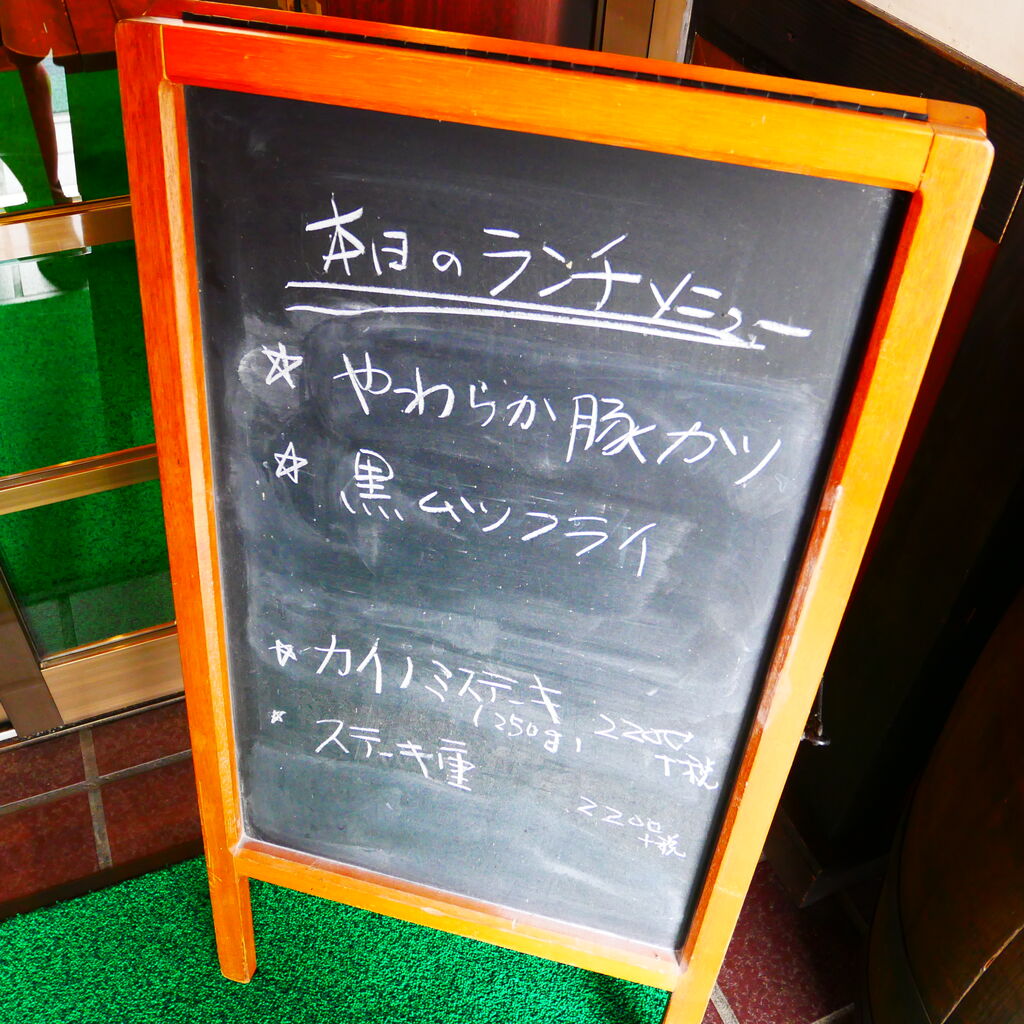 本日のランチメニュー
☆ やわらか豚カツ
☆ 黒ムツフライ
☆ カイノミステーキ
(250g) 2200
+税
☆ ステーキ重
2200
+税